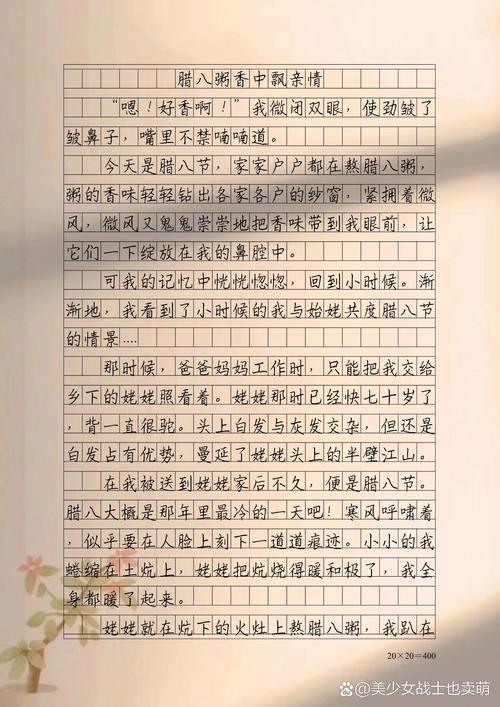 腊八粥香中飘亲情
“嗯！好香啊！”我微闭双眼，使劲皱了
皱鼻子，嘴里不禁喃喃道。
今天是腊八节，家家户户都在熬腊八粥，
粥的香味轻轻钻出各家各户的纱窗，紧拥着微
风，微风又鬼鬼崇崇地把香味带到我眼前，让
它们一下绽放在我的鼻腔中。
可我的记忆中恍恍惚惚，回到小时候。渐
渐地，我看到了小时候的我与始姥共度腊八节
的情景....
那时候，爸爸妈妈工作时，只能把我交给
乡下的姥姥照看着。姥姥那时已经快七十岁了
，背一直很驼。头上白发与灰发交杂，但还是
白发占有优势，曼延了姥姥头上的半壁江山。
在我被送到姥姥家后不久，便是腊八节。
腊八大概是那年里最冷的一天吧！寒风呼啸着
，似乎要在人脸上刻下一道道痕迹。小小的我
蜷缩在土炕上，姥姥把炕烧得暖和极了，我全
身都暖了起来。
姥姥就在炕下的火灶上熬腊八粥，我趴在
20×20=400
美少女战士也卖萌